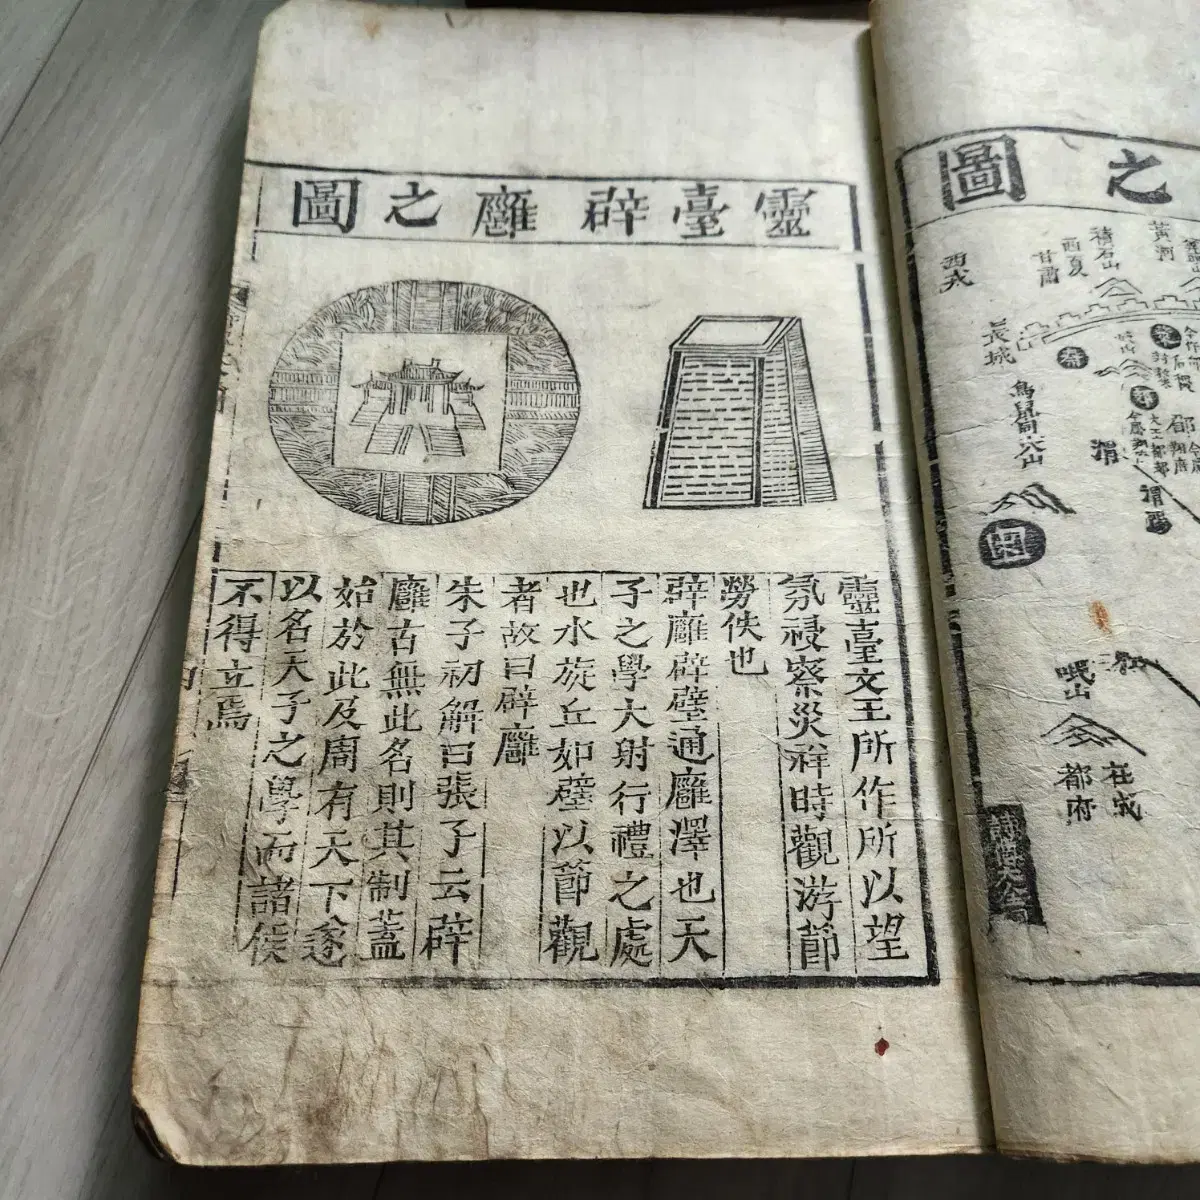 之圖
黃河
積石山
西夏
甘肅
西戎
長城
鳥鼠同穴山
渭
岷山
都府
靈臺辟廱之圖
靈臺文王所作所以望
氛祲察災祥時觀游節
勞佚也
辟廱辟璧通廱澤也天
子之學大射行禮之處
也水旋丘如璧以節觀
者故曰辟廱
朱子初解曰張子云辟
廱古無此名則其制蓋
始於此及周有天下遂
以名天子之學而諸侯
不得立焉